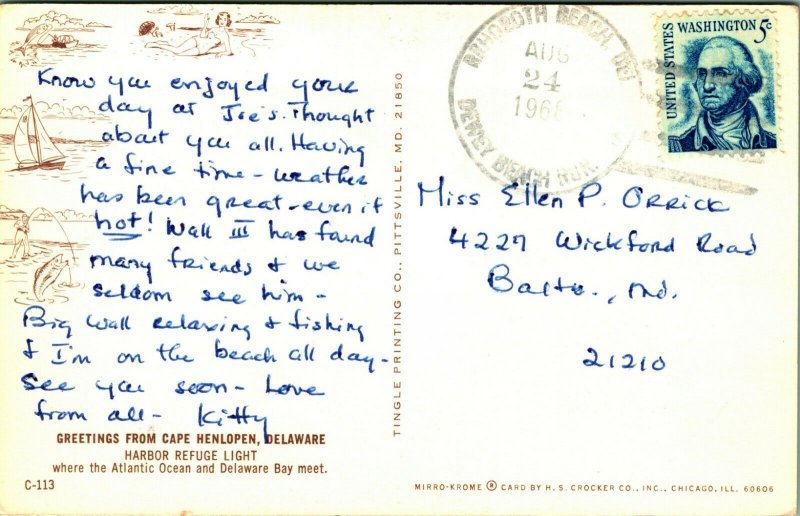 Know you enjoyed your
day at Joe's. Thought
about you all. Having
a fine time - weather
has been great - even if
hot! Wall III has found
many friends & we
seldom see him -
Big Wall relaxing & fishing
& I'm on the beach all day -
See you soon - Love
from all - Kitty
GREETINGS FROM CAPE HENLOPEN, DELAWARE
HARBOR REFUGE LIGHT
where the Atlantic Ocean and Delaware Bay meet.
C-113
TINGLE PRINTING CO., PITTSVILLE, MD. 21850
REHOBOTH BEACH, DEL
AUG
24
1966
DEWEY BEACH RUR.
UNITED STATES
WASHINGTON 5c
Miss Ellen P. Orrick
4227 Wickford Road
Balto., Md.
21210
MIRRO-KROME ® CARD BY H. S. CROCKER CO., INC., CHICAGO, ILL. 60606